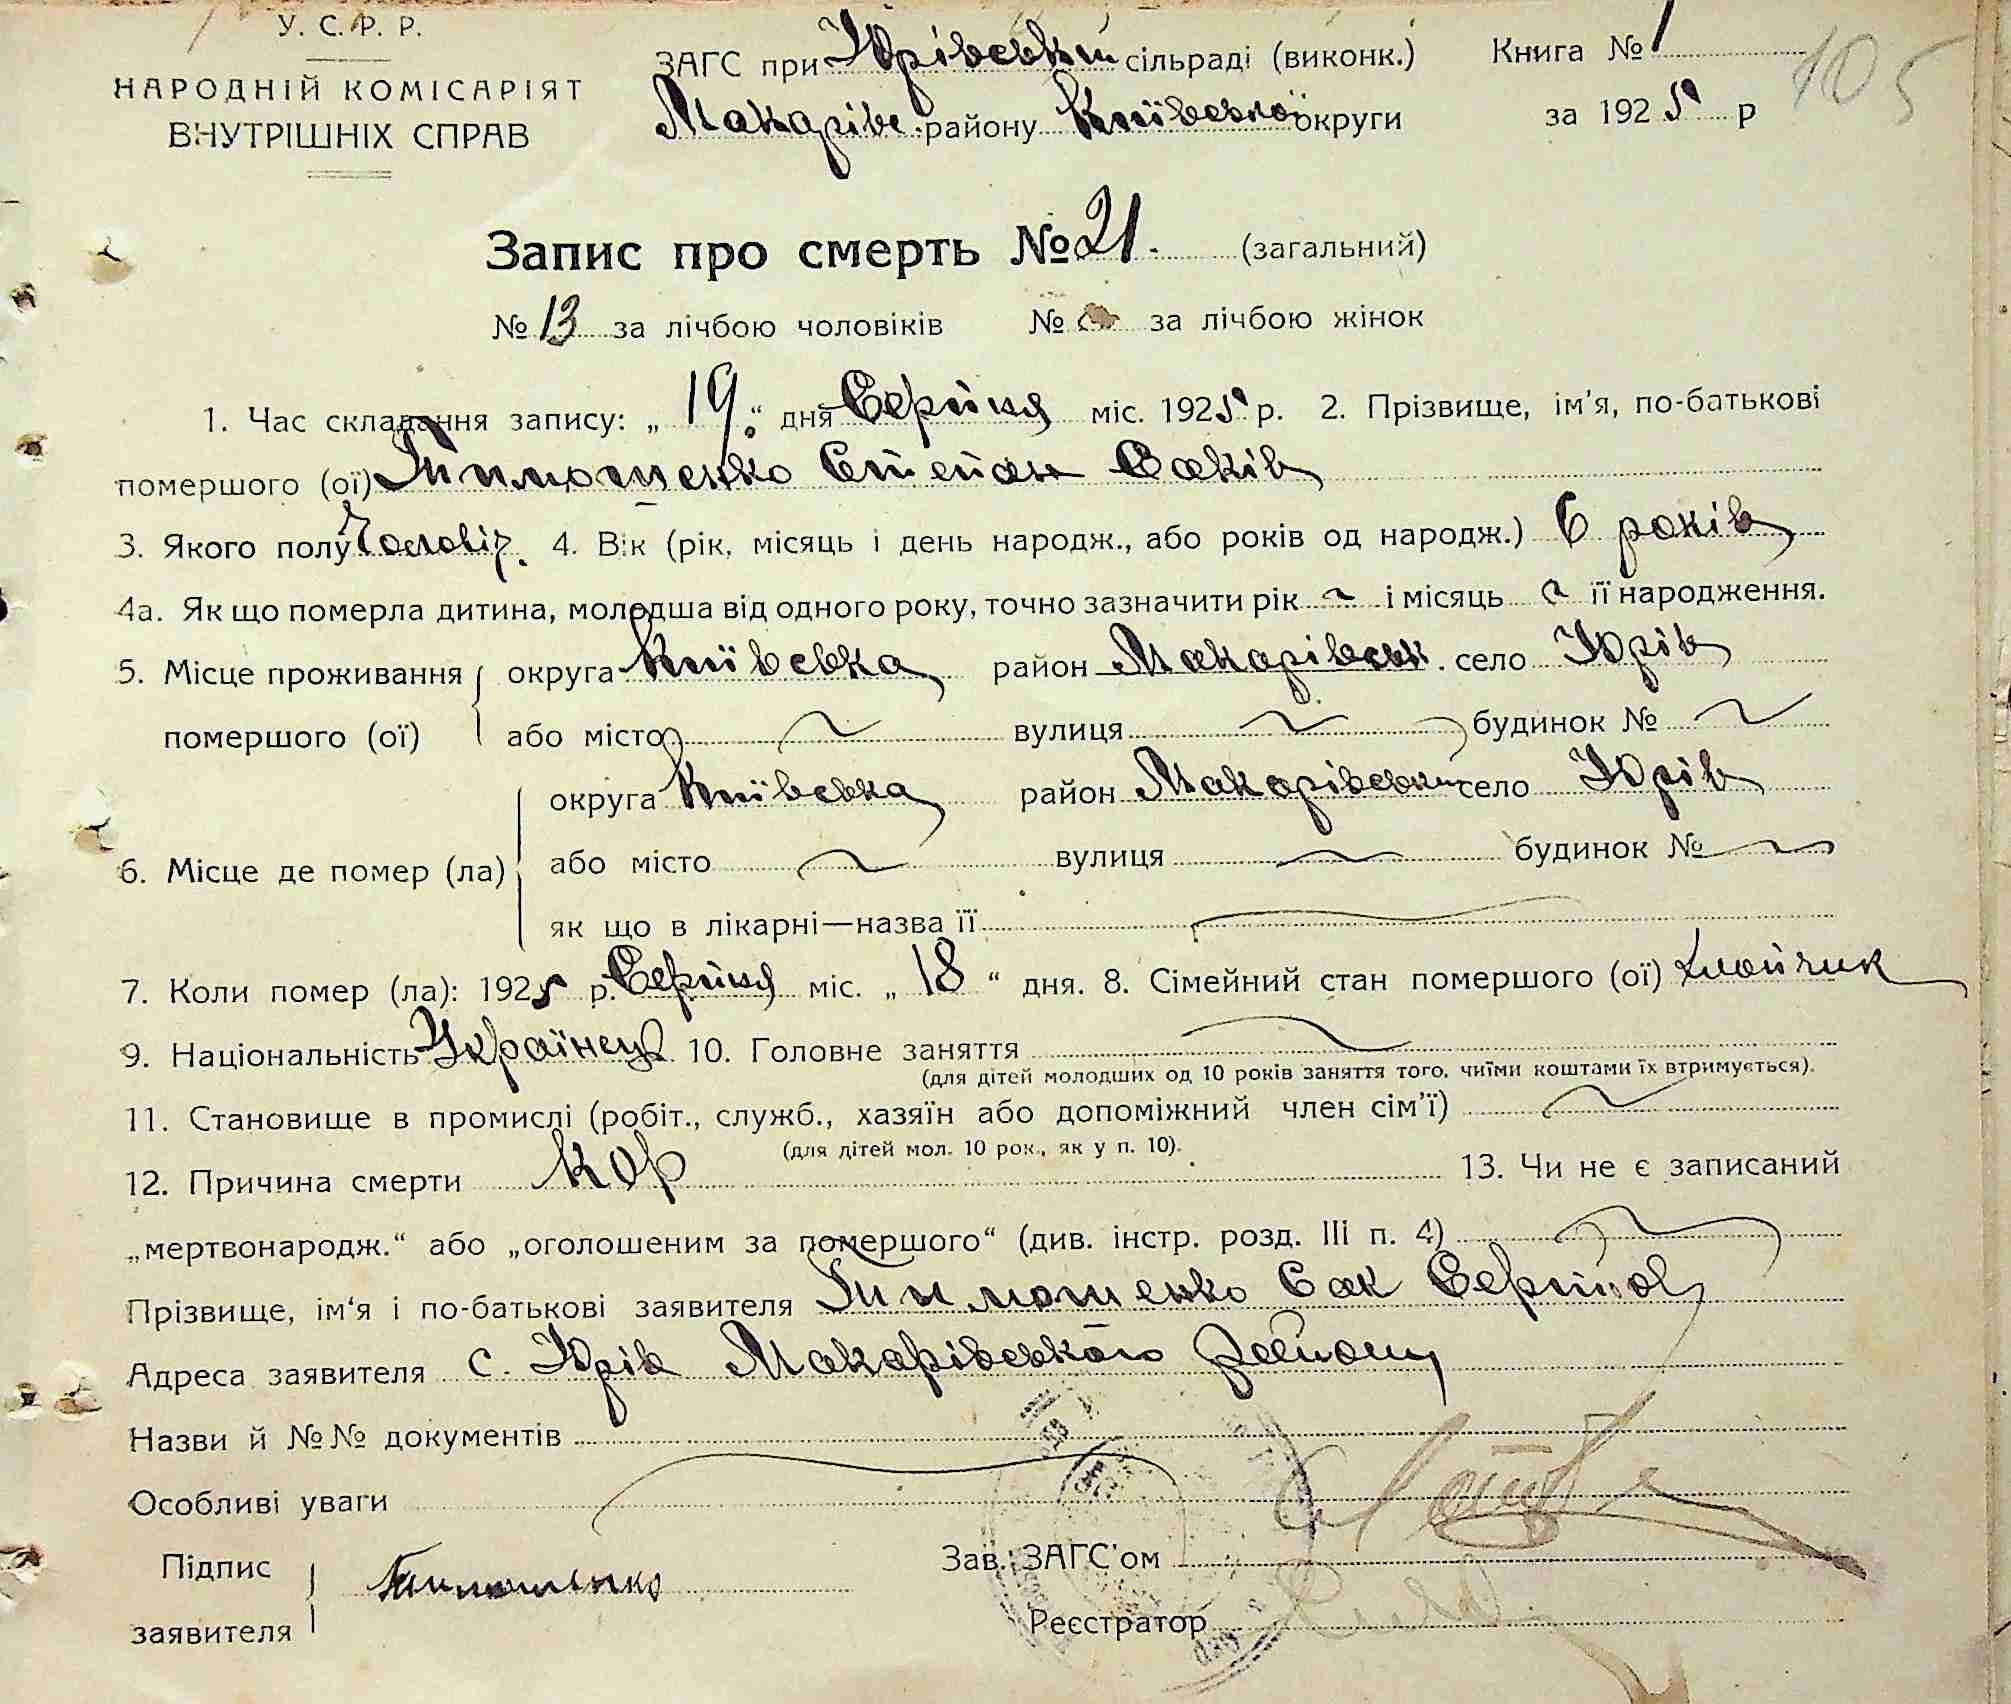 У. С. Р. Р.
НАРОДНІЙ КОМІСАРІЯТ
ВНУТРІШНІХ СПРАВ
ЗАГС при Юрівській сільраді (виконк.) Книга № 1
Макарівс. району Київської округи за 1925 р
105
Запис про смерть № 21. (загальний)
№ 13 за лічбою чоловіків № за лічбою жінок
1. Час складання запису: „ 19 “ дня Серпня міс. 1925 р. 2. Прізвище, ім'я, по-батькові
помершого (ої) Тимошенко Степан Саків
3. Якого полу Чоловіч. 4. Вік (рік, місяць і день народж., або років од народж.) 6 років
4а. Як що померла дитина, молодша від одного року, точно зазначити рік ~ і місяць ~ її народження.
5. Місце проживання округа Київська район Макарівськ. село Юрів
помершого (ої) або місто ~ вулиця ~ будинок № ~
округа Київська район Макарівський село Юрів
6. Місце де помер (ла) або місто ~ вулиця ~ будинок № ~
як що в лікарні—назва її
7. Коли помер (ла): 1925 р. Серпня міс. „ 18 “ дня. 8. Сімейний стан помершого (ої) хлопчик
9. Національність Українець 10. Головне заняття
(для дітей молодших од 10 років заняття того, чиїми коштами їх втримується).
11. Становище в промислі (робіт., служб., хазяїн або допоміжний член сім'ї) ~
(для дітей мол. 10 рок., як у п. 10).
12. Причина смерти Кор 13. Чи не є записаний
„мертвонародж.“ або „оголошеним за помершого“ (див. інстр. розд. III п. 4) ~
Прізвище, ім'я і по-батькові заявителя Тимошенко Сак
Адреса заявителя с. Юрів Макарівського району
Назви й №№ документів
Особливі уваги
Підпис Тимошенко Зав. ЗАГС'ом
заявителя Реєстратор